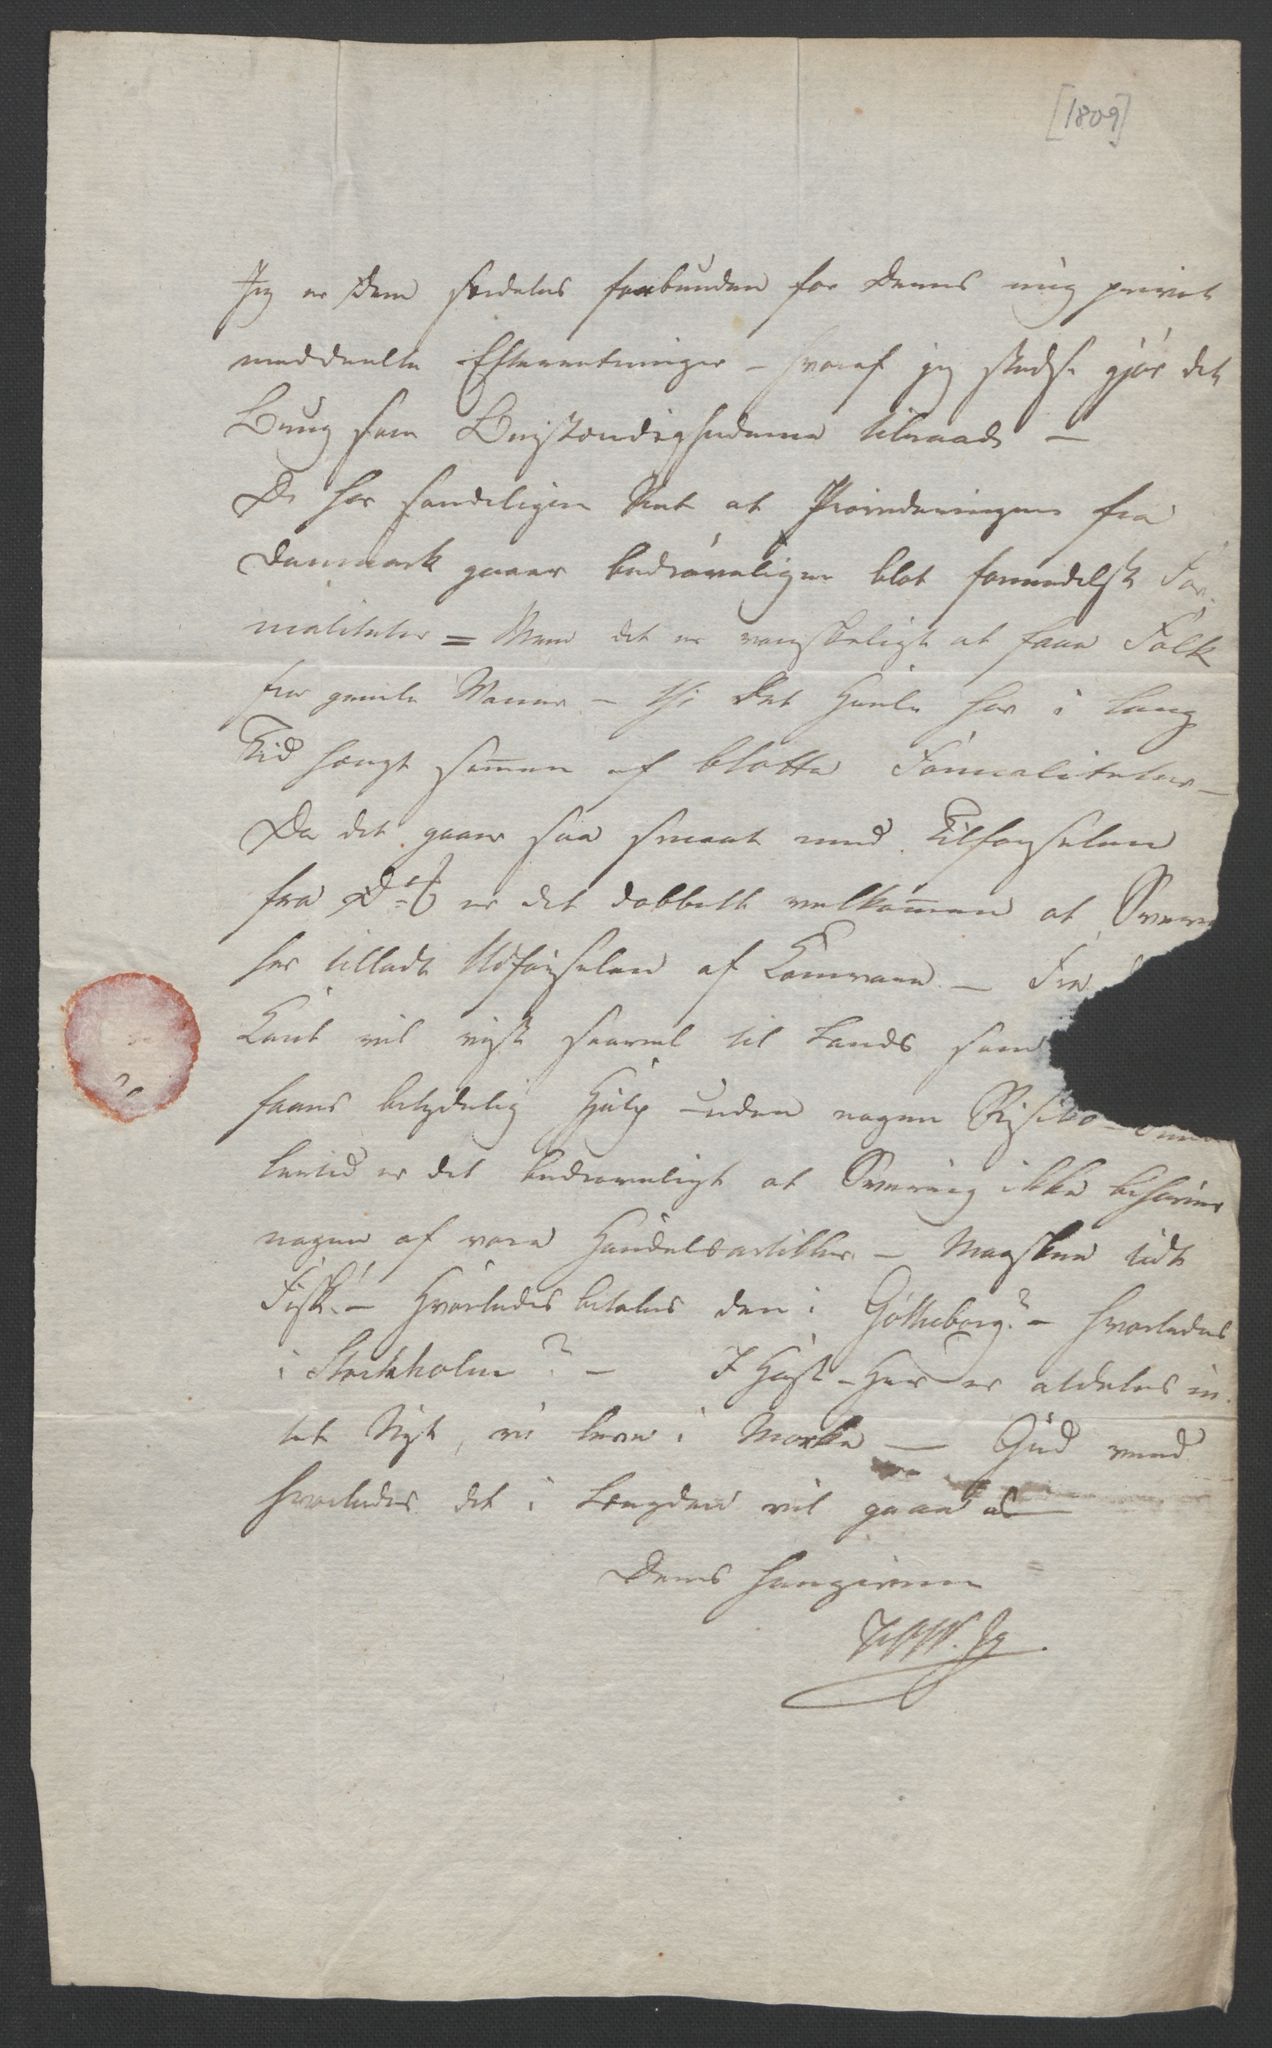 [1809]
Jeg er Dem særdeles forbunden for Deres mig privat
meddeelte Efterretninger – hvoraf jeg stedse gjör det
Brug som Omstændighederne tilraade –
De har sandeligen Ret at Provideringen fra
Danmark gaaer bedröveligen blot formedelst For-
maliteter = Men det er vanskeligt at faae Folk
fra gamle Vaner – thi det Heele har i lang
Tid hængt sammen af blotte Formaliteter –
Da det gaaer saa smaat med Tilförselen
fra D: er det dobbelt velkommen at Sver
har tilladt Udförselen af Kornvare – Fra
Kant vil vist saavel til Lands som
faaes betydelig Hjelp uden nogen Risico –
lertid er det bedröveligt at Sverrig ikke behöver
nogen af vore Handelsartikler – Maaskee lidt
Fisk. – Hvorledes betales den i Gottheborg? – hvorledes
i Stockholm? – I Hast – Her er aldeles in-
tet Nyt, vi leve i Mörke – Gud veed
hvorledes det i Længden vil gaae os
Deres hengivne